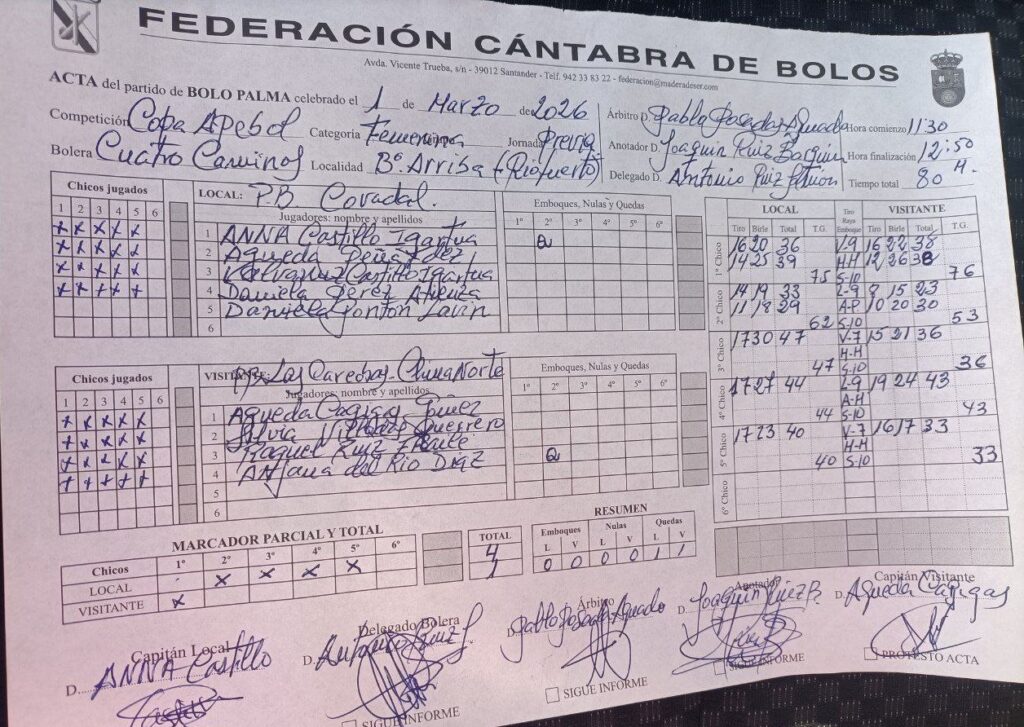 FEDERACIÓN CÁNTABRA DE BOLOS
Avda. Vicente Trueba, s/n - 39012 Santander - Telf. 942 33 83 22 - federacion@maderadeser.com
ACTA del partido de BOLO PALMA celebrado el 1 de Marzo de 2026
Competición Copa Apebol Categoría Femenina Jornada Previa
Bolera Cuatro Caminos Localidad Bº. Arriba (Riotuerto)
Árbitro D. Pablo Posadas Aguado Hora comienzo 11:30
Anotador D. Joaquin Ruiz Hora finalización 12:50
Delegado D. Antonio Ruiz Tiempo total 80
Chicos jugados
1 2 3 4 5 6
x x x x x
x x x x x
x x x x x
x x x x x
LOCAL: P.B. Covadal.
Jugadores: nombre y apellidos
1 ANNA Castillo Igartua
2 Agueda
3 Castillo Igartua
4 Daniela Pérez Atienza
5 Daniela Gontón Lavin
6
Emboques, Nulas y Quedas
1º 2º 3º 4º 5º 6º
Q
Chicos jugados
1 2 3 4 5 6
x x x x x
x x x x x
x x x x x
x x x x x
VISITANTE: P.B. Las Carechas - Norte
Jugadores: nombre y apellidos
1 Agueda Cagigas
2 Silvia Guerrero
3 Raquel Ruiz
4 Anjana del Rio Diaz
5
6
Emboques, Nulas y Quedas
1º 2º 3º 4º 5º 6º
Q
LOCAL VISITANTE
Tiro Birle Total T.G. Tiro Raya Emboque Tiro Birle Total T.G.
1º Chico 16 20 36 V-9 16 22 38
14 25 39 H-H 12 26 38
75 S-10 76
2º Chico 14 19 33 L-9 8 15 23
11 18 29 A-P 10 20 30
62 S-10 53
3º Chico 17 30 47 V-7 15 21 36
H-H
47 S-10 36
4º Chico 17 27 44 L-9 19 24 43
A-H
44 S-10 43
5º Chico 17 23 40 V-7 16 17 33
H-H
40 S-10 33
6º Chico
MARCADOR PARCIAL Y TOTAL
Chicos 1º 2º 3º 4º 5º 6º TOTAL
LOCAL x x x x 4
VISITANTE x 1
RESUMEN
Emboques Nulas Quedas
L V L V L V
0 0 0 0 1 1
Capitán Local
D. ANNA Castillo
Delegado Bolera
D. Antonio Ruiz
SIGUE INFORME
Árbitro
D. Pablo Posadas Aguado
SIGUE INFORME
Anotador
D. Joaquin Ruiz B.
SIGUE INFORME
Capitán Visitante
D. Agueda Cagigas
PROTESTO ACTA